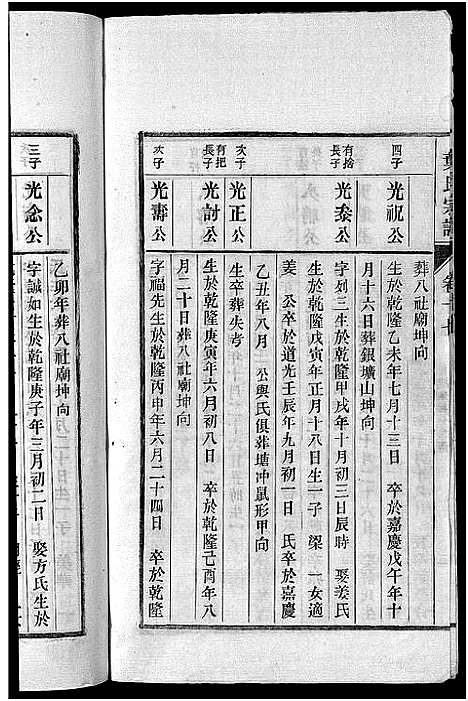 葉氏宗譜
卷十廿
葬八社廟坤向
四子
光祝公
生於乾隆乙未年七月十三日 卒於嘉慶戊午年十
月十六日葬銀壙山坤向
有捨
長子
光泰公
字列三生於乾隆甲戌年十月初三日辰時 娶姜氏
生於乾隆戊寅年正月十八日生一子 梁 一女適
姜 公卒於道光壬辰年九月初一日 氏卒於嘉慶
乙丑年八月 公與氏俱葬塘冲鼠形甲向
次子
光正公
生卒葬失考
有把
長子
光討公
生於乾隆庚寅年六月初八日 卒於乾隆己酉年八
月二十日葬八社廟坤向
次子
光壽公
字福先生於乾隆丙申年六月二十四日 卒於乾隆
乙卯年葬八社廟坤向
三子
光念公
字誠如生於乾隆庚子年三月初二日 娶方氏生於